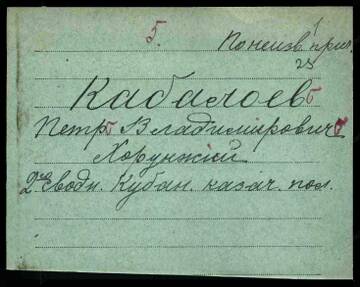 5.
1
По неизв. прич.
23
Кабалоевъ
Петръ Владимировичъ
Хорунжій
2го Сводн. Кубан. казач. пол.